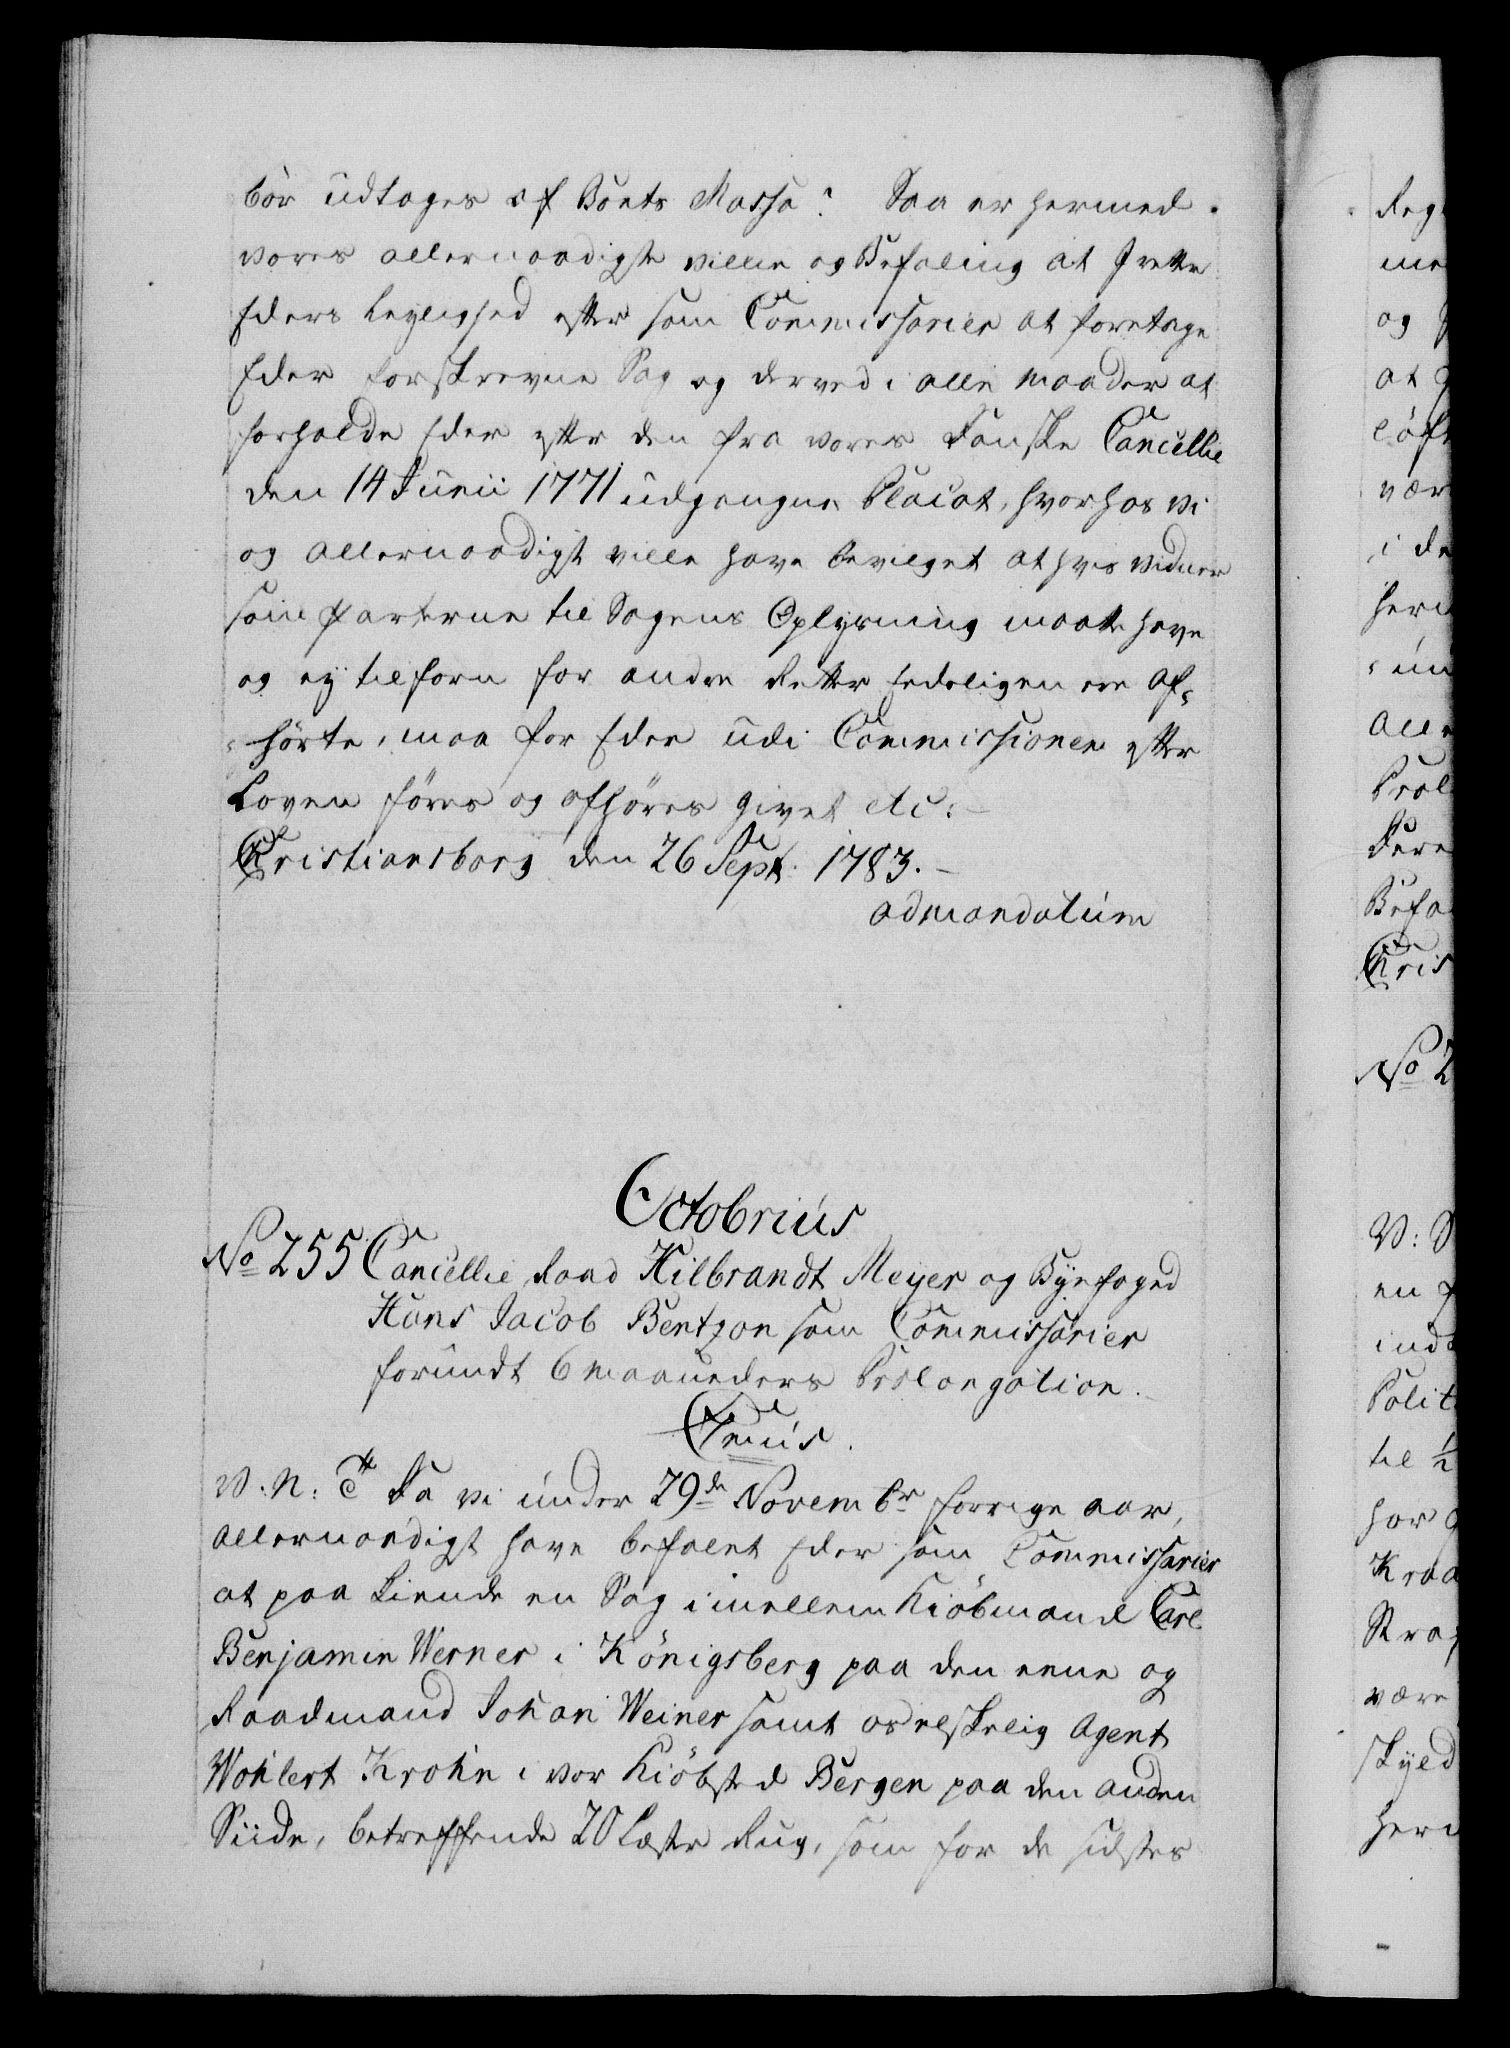 bör udtages af Boets Massa? Saa er hermed
vores allernaadigste villie og Befaling at I rette
Eders Leylighed efter som Commissarier at foretage
Eder forskrevne Sag og derved i alle maader at
forholde Eder efter den fra vores Danske Cancellie
den 14 Junii 1771 udgangne Placat, hvorhos vi
og allernaadigst ville have bevilget at hvis vidner
som Parterne til Sagens Oplysning maatte have
og ej tilforn for andre Retter Eedeligen ere af-
hörte, maa for Eder udi Commissionen efter
Loven föres og afhöres givet etc:
Christiansborg den 26 Sept: 1783.
ad mandatum
Octobrius
No 255 Cancellie Raad Hilbrandt Meyer og Byefoged
Hans Jacob Bentzon som Commissarier
forundt 6 maaneders Prolongation.
1mus.
V: N: Da vi under 29de Novembr forrige aar,
allernaadigst have befalet Eder som Commissarier
at paa Kiende en Sag imellem Kiöbmand Carl
Benjamin Werner i Königsberg paa den eene og
Raadmand Johan Weiner samt Agent
Wohlert Krohn i vor Kiöbsted Bergen paa den anden
Siide, betreffende 20 Læster Rug, som for de sidstes